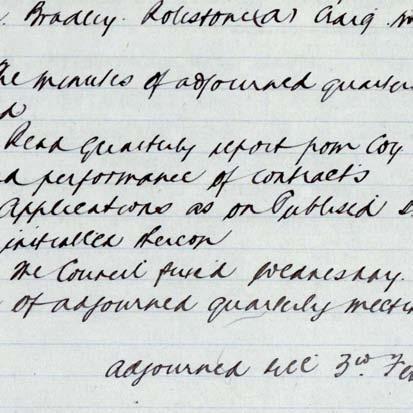 . Bradley. Rolestone(a) Craig. M
The minutes of adjourned quarter
d
Read quarterly report from Coy
performance of contracts
Applications as on Publised
initialled hereon
The Council fixed Wednesday.
of adjourned quarterly meeti
adjourned till 3rd Fe